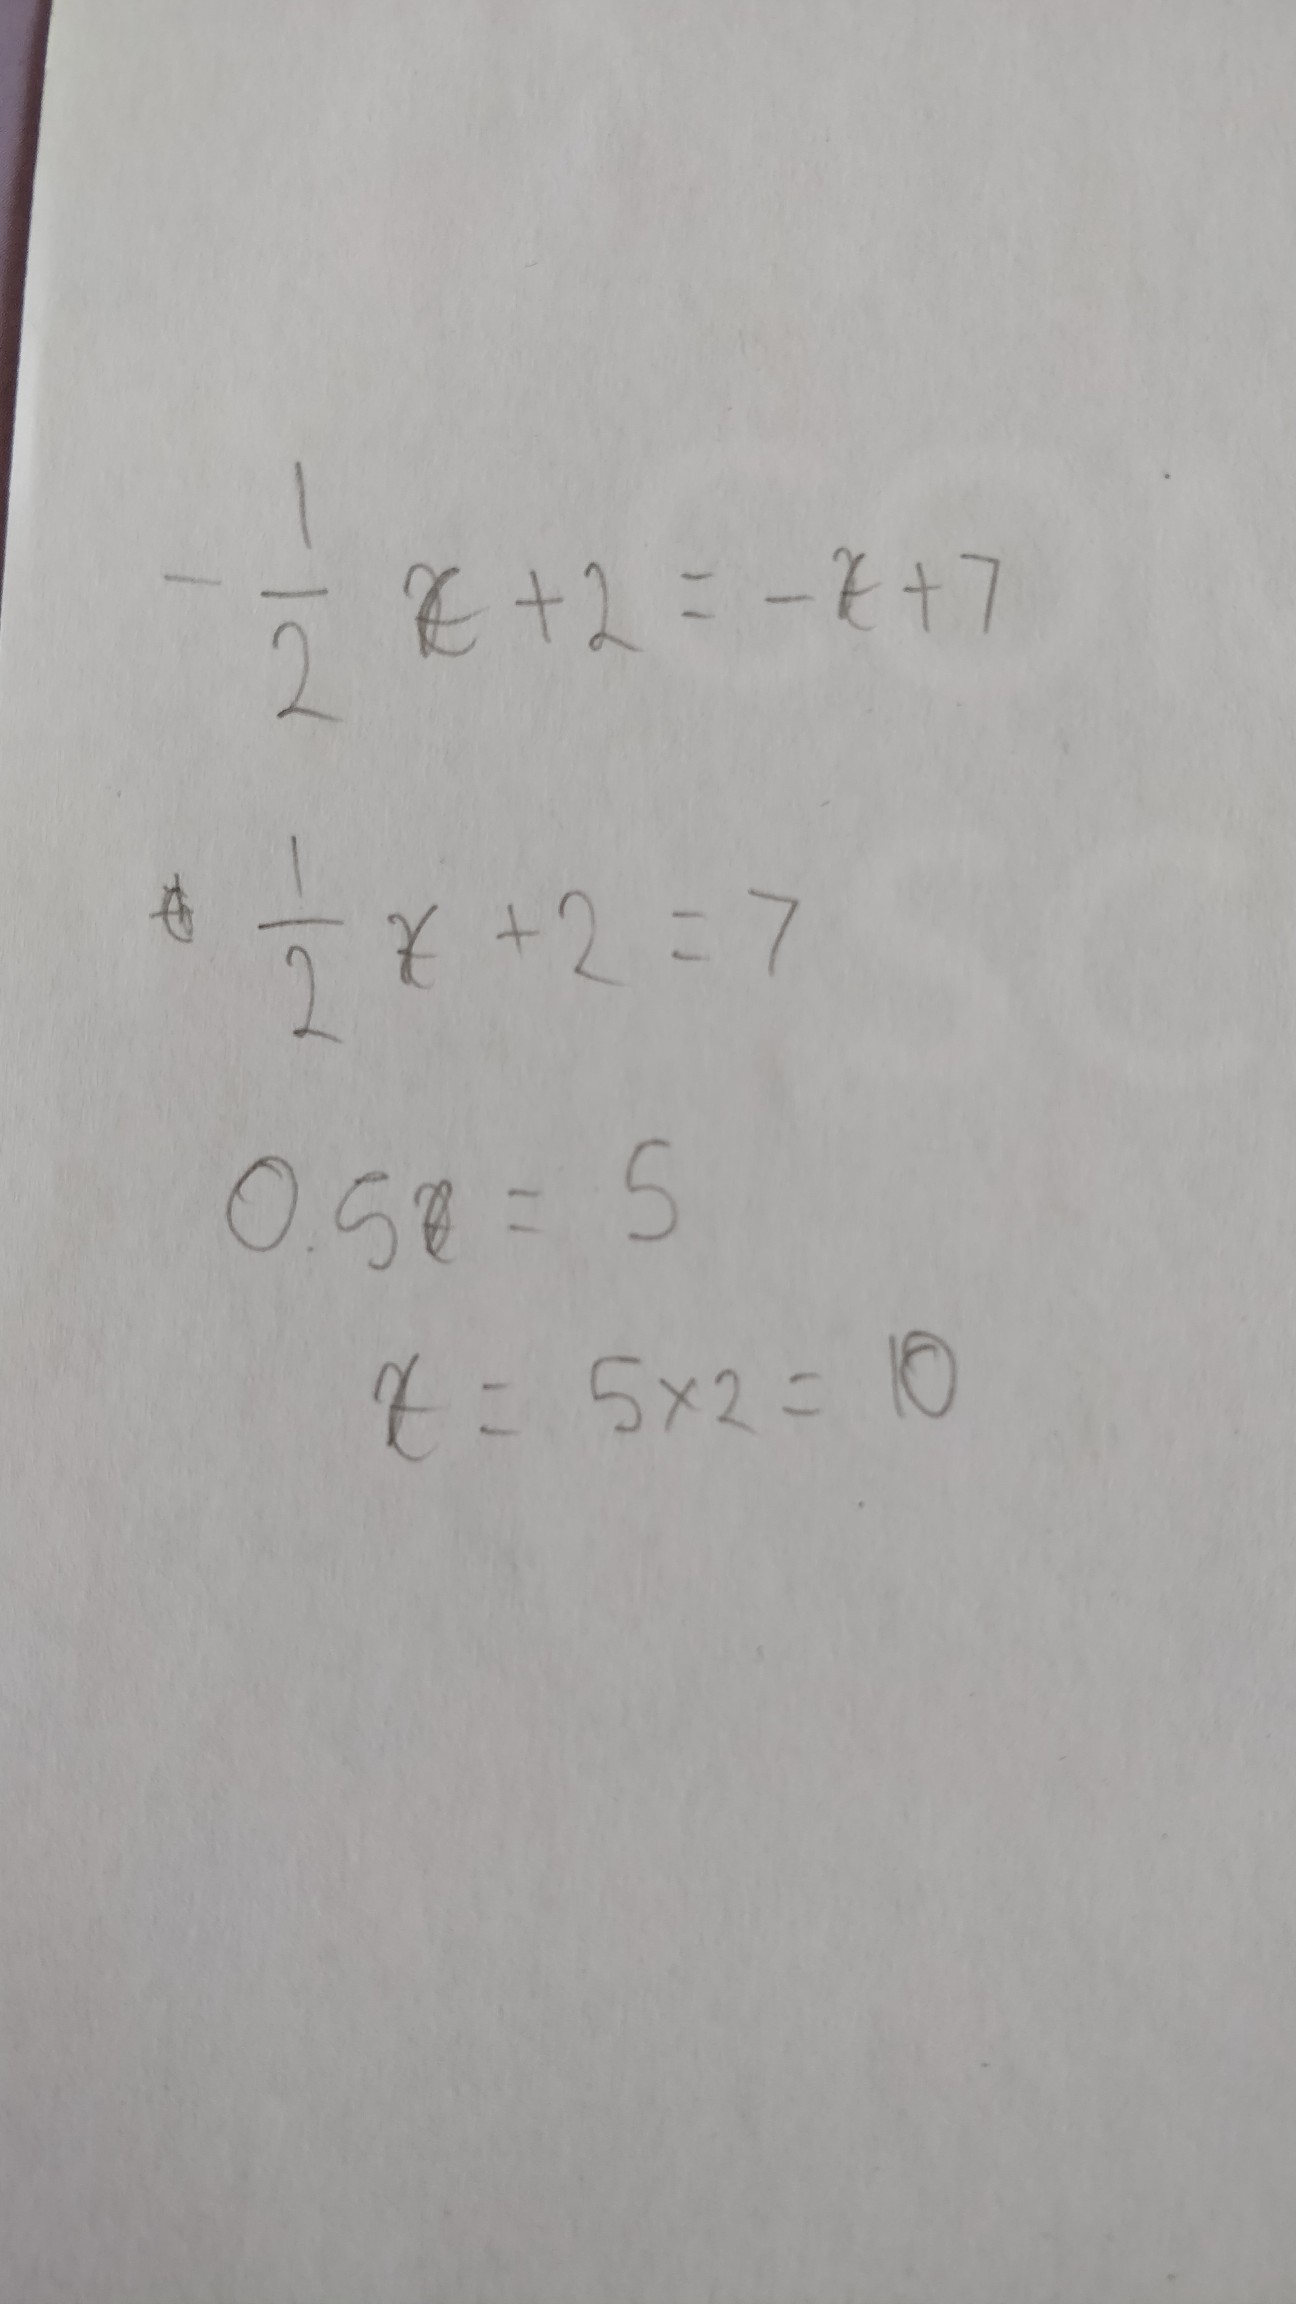 - 1/2 x + 2 = - x + 7
1/2 x + 2 = 7
0.5x = 5
x = 5 × 2 = 10